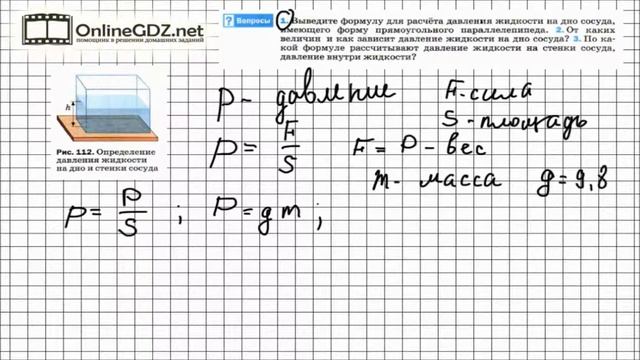 OnlineGDZ.net
помощник в решении домашних заданий
? Вопросы
1. Выведите формулу для расчёта давления жидкости на дно сосуда,
имеющего форму прямоугольного параллелепипеда. 2. От каких
величин и как зависит давление жидкости на дно сосуда? 3. По ка-
кой формуле рассчитывают давление жидкости на стенки сосуда,
давление внутри жидкости?
h
Рис. 112. Определение
давления жидкости
на дно и стенки сосуда
p - давление
F - сила
S - площадь
p = F/S
F = P - вес
m - масса g = 9,8
p = P/S ; P = gm ;